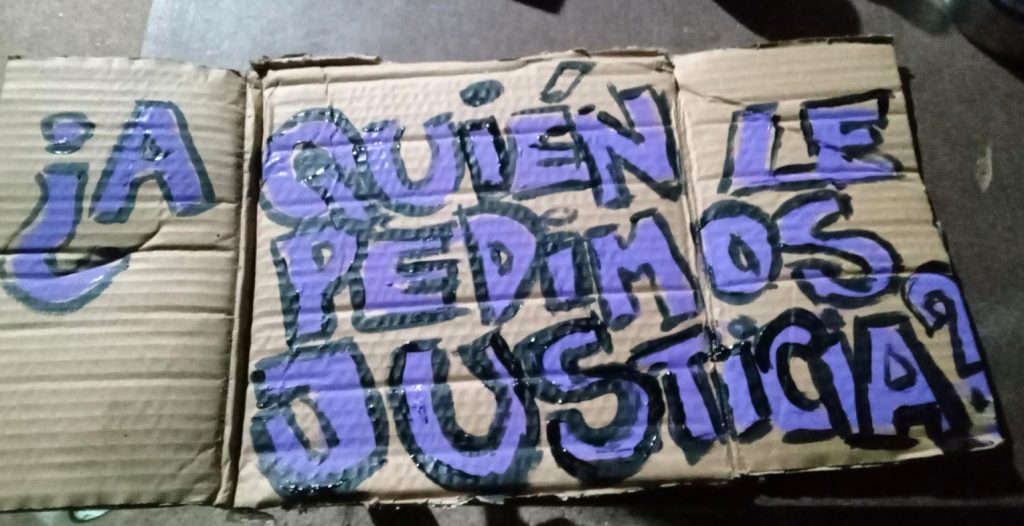 ¿A QUIÉN LE
PEDIMOS
JUSTICIA?